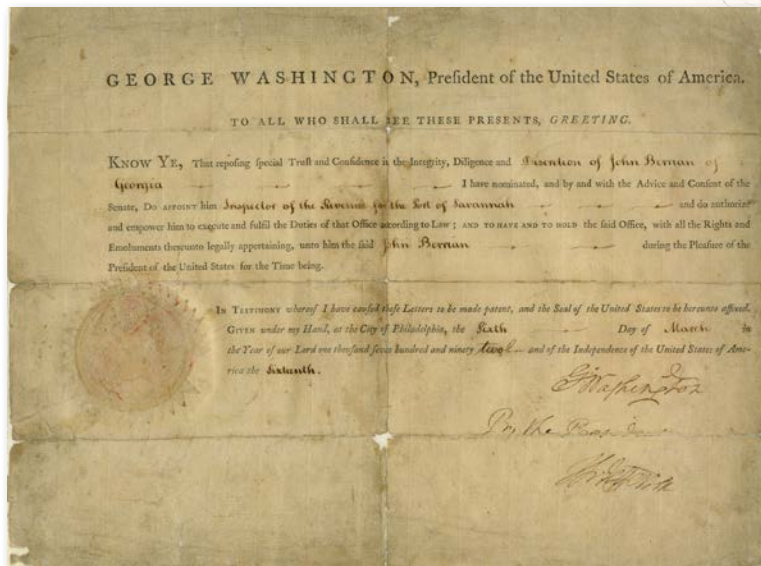 GEORGE WASHINGTON, Preſident of the United States of America.
TO ALL WHO SHALL SEE THESE PRESENTS, GREETING.
KNOW YE, That repoſing ſpecial Truſt and Confidence in the Integrity, Diligence and Diſcretion of John Berrian of
Georgia I have nominated, and by and with the Advice and Conſent of the
Senate, DO APPOINT him Inspector of the Revenue for the Port of Savannah and do authorize
and empower him to execute and fulfil the Duties of that Office according to Law; AND TO HAVE AND TO HOLD the ſaid Office, with all the Rights and
Emoluments thereunto legally appertaining, unto him the ſaid John Berrian during the Pleaſure of the
Preſident of the United States for the Time being.
IN TESTIMONY whereof I have cauſed theſe Letters to be made patent, and the Seal of the United States to be hereunto affixed.
GIVEN under my Hand, at the City of Philadelphia, the Sixth Day of March in
the Year of our Lord one thouſand ſeven hundred and ninety two and of the Independence of the United States of Ame-
rica the Sixteenth.
G Washington
By the President